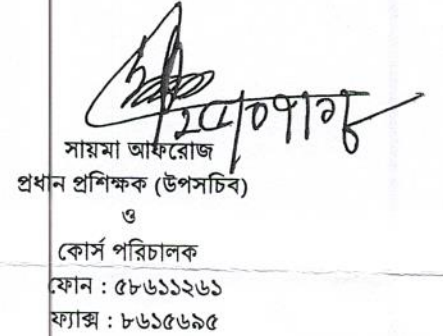 সায়মা আফরোজ
প্রধান প্রশিক্ষক (উপসচিব)
ও
কোর্স পরিচালক
ফোন : ৫৮৬১১২৬১
ফ্যাক্স : ৮৬১৫৬৯৫